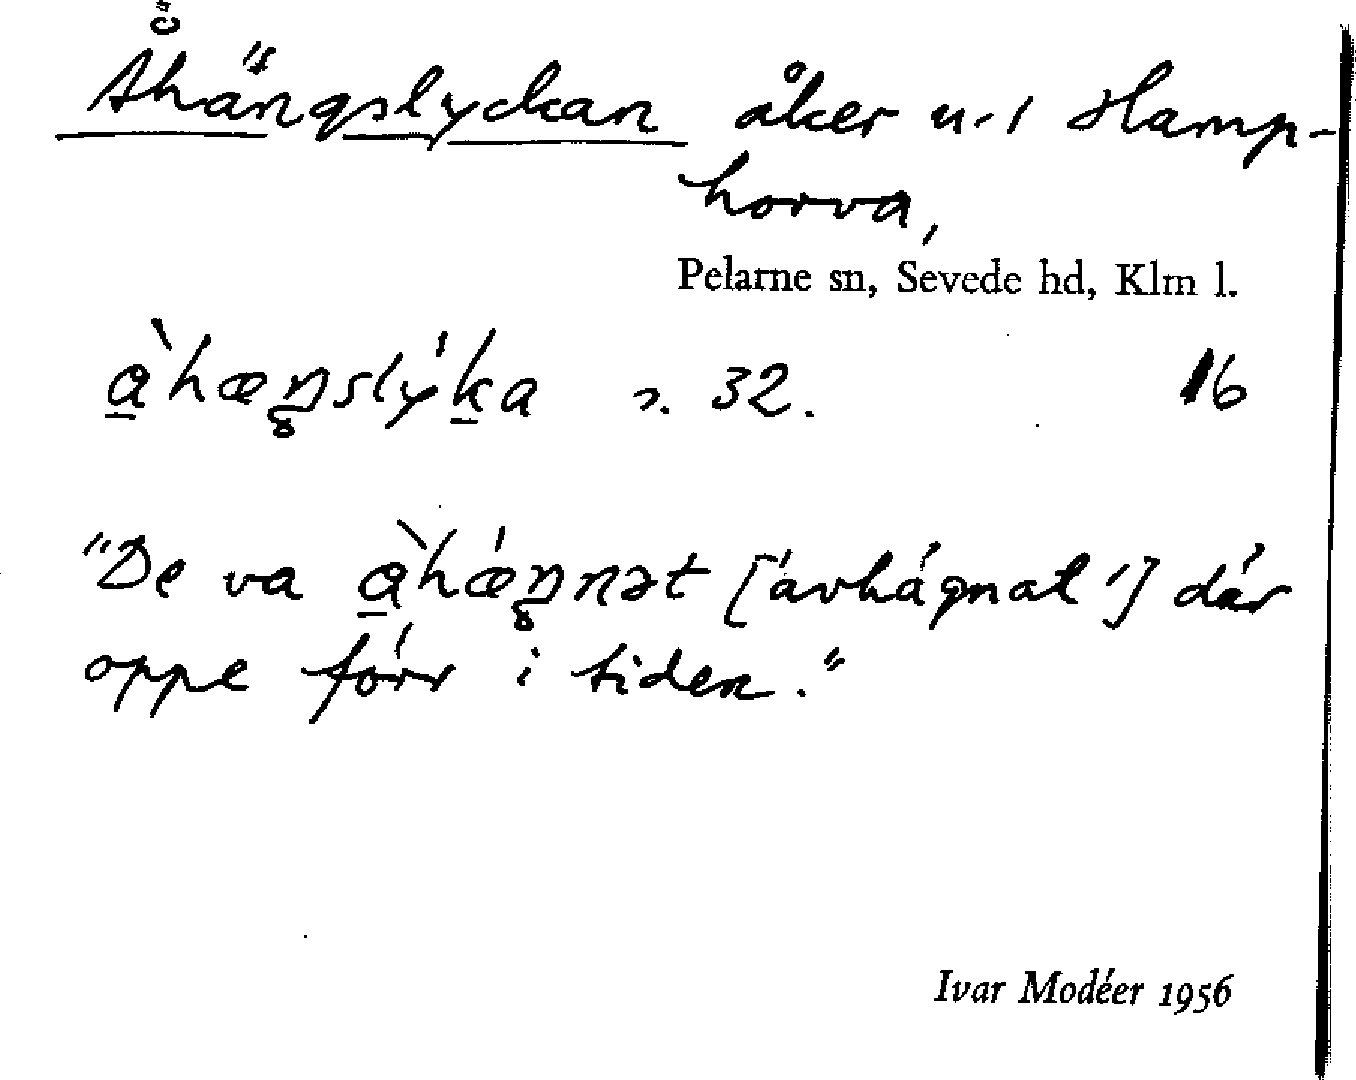 Åhängslyckan åker u. I Hamp-
horva,
Pelarne sn, Sevede hd, Klm l.
à̱hæŋslýḵa s. 32. 16
"De va à̱hǽŋnət ['avhägnat'] där
oppe förr i tiden."
Ivar Modéer 1956